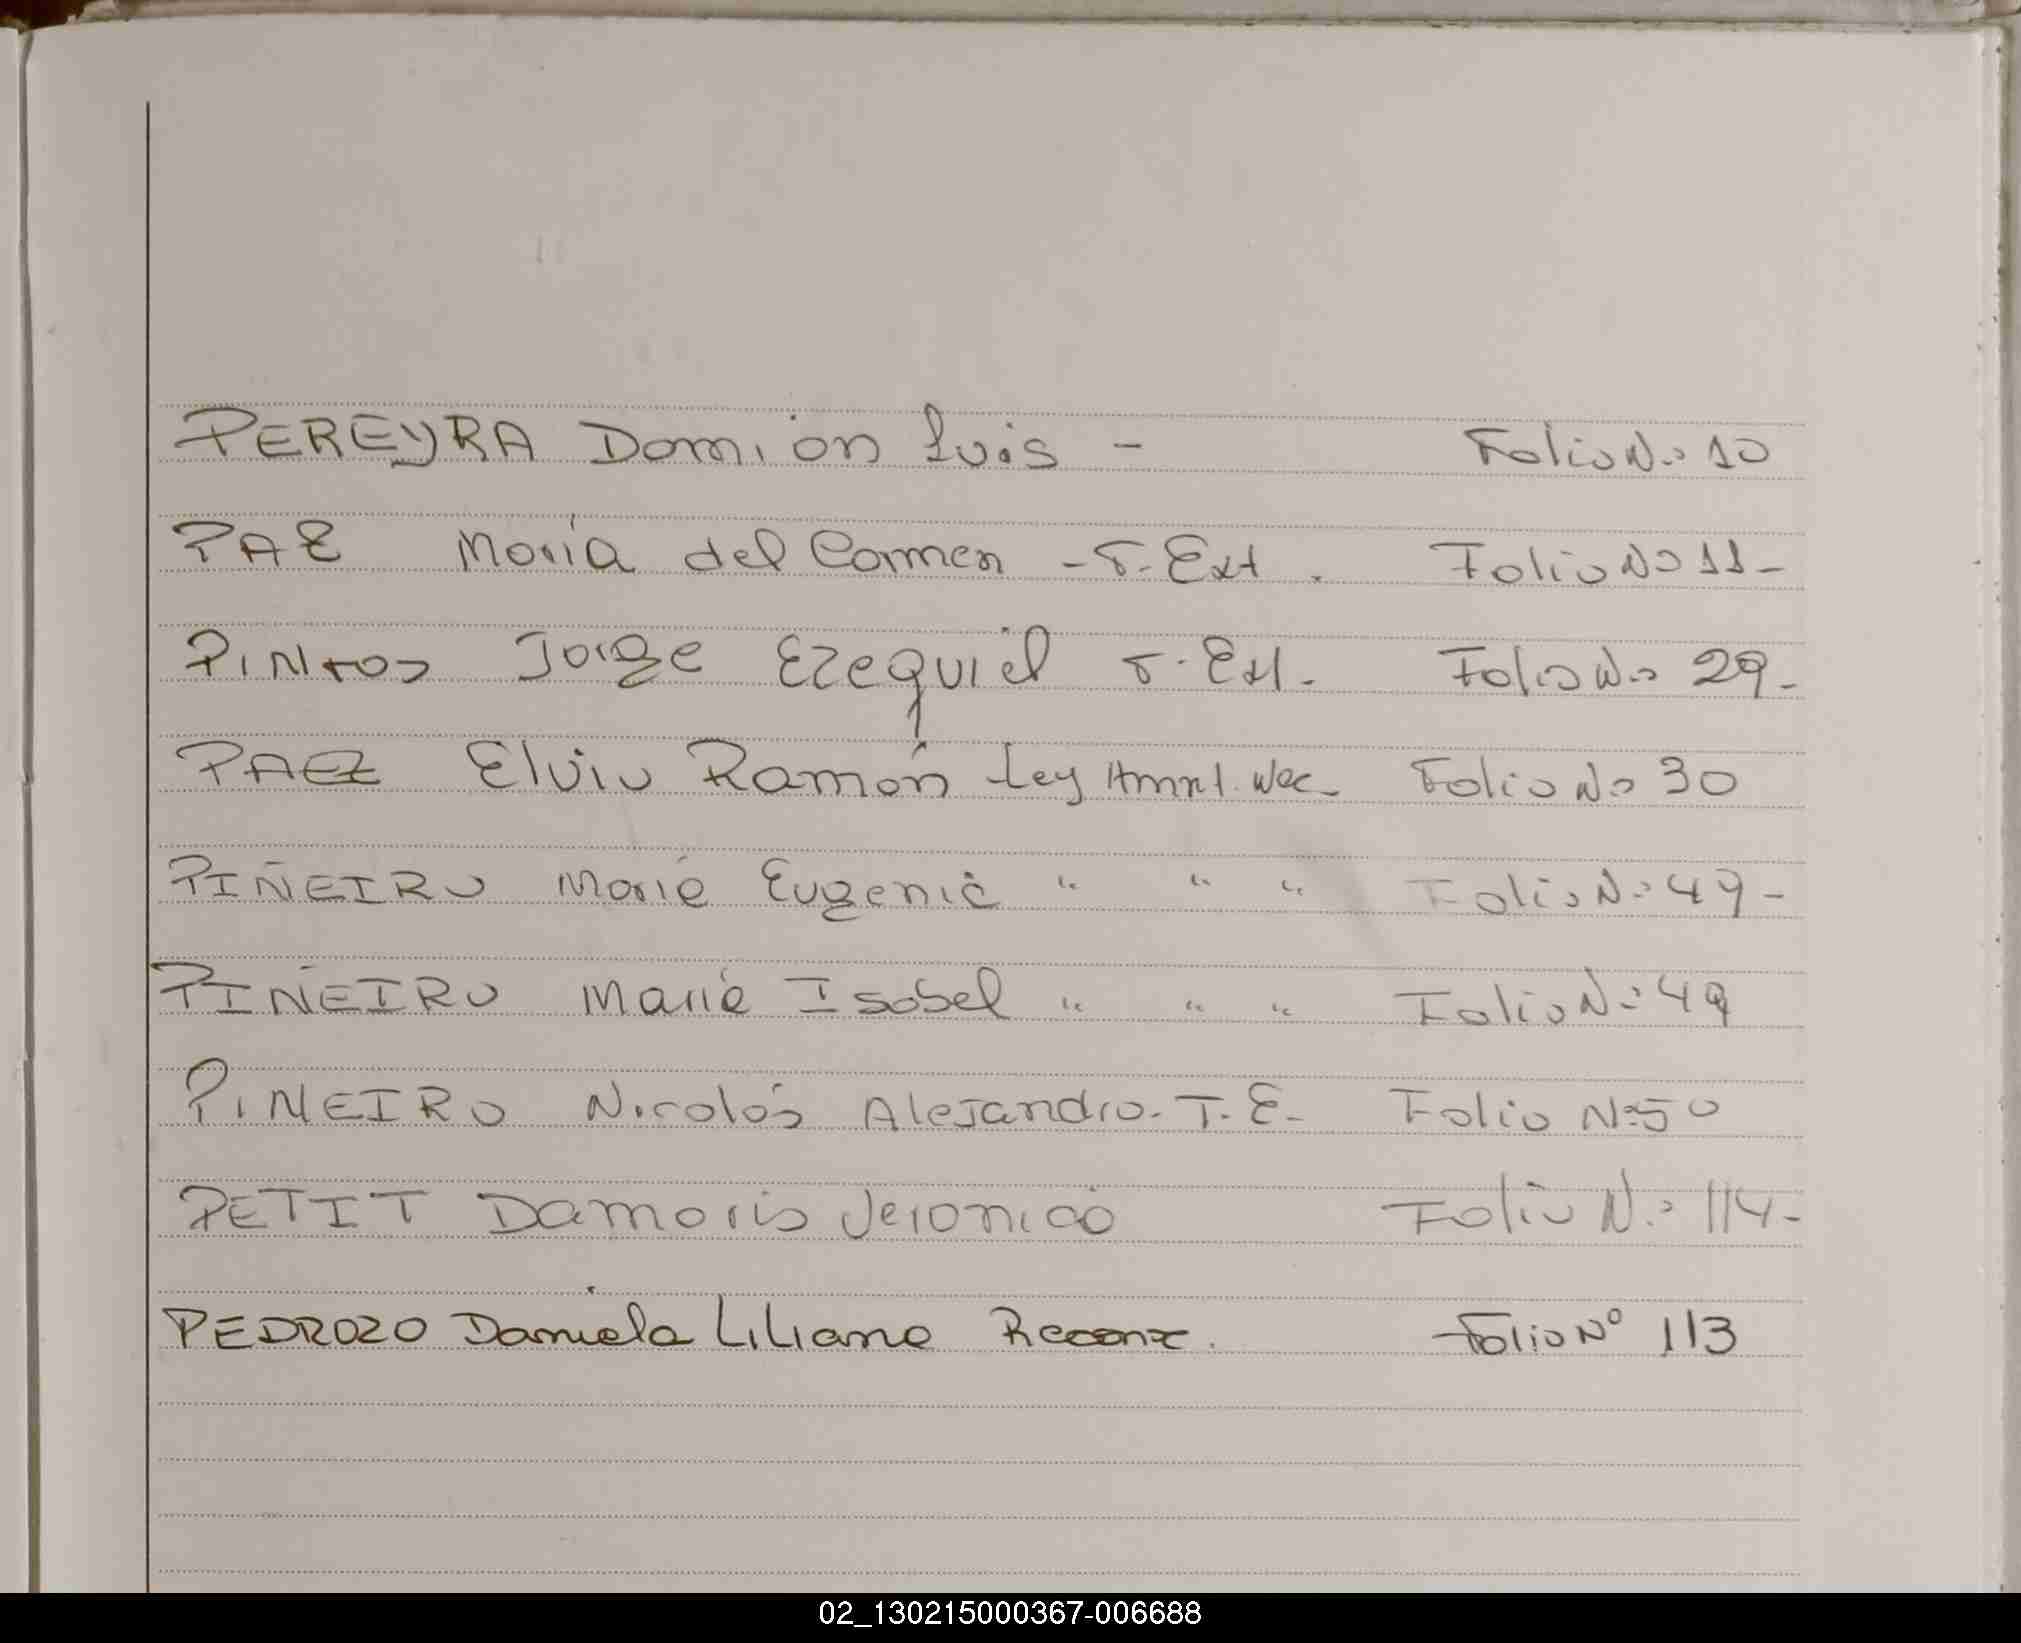 PEREYRA Damian Luis - Folio No 10
PAZ María del Carmen - T. Ext. Folio No 11-
PINTOS Jorge Ezequiel T. Ext. Folio No 29-
PAEZ Elvio Ramón Ley Folio No 30
PIÑEIRO María Eugenia " " " Folio No 49-
PIÑEIRO María Isabel " " " Folio No 49
PIÑEIRO Nicolás Alejandro. T. E- Folio No 50
PETIT Damaris Veronica Folio No 114-
PEDROZO Daniela Liliana Folio No 113
02_130215000367-006688